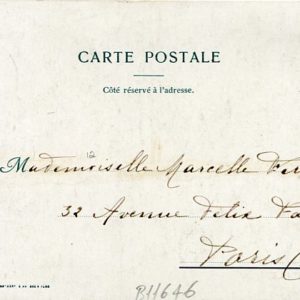 CARTE POSTALE
Côté réservé à l'adresse.
12
Mademoiselle Marcelle
32 Avenue Félix
Paris
B11646